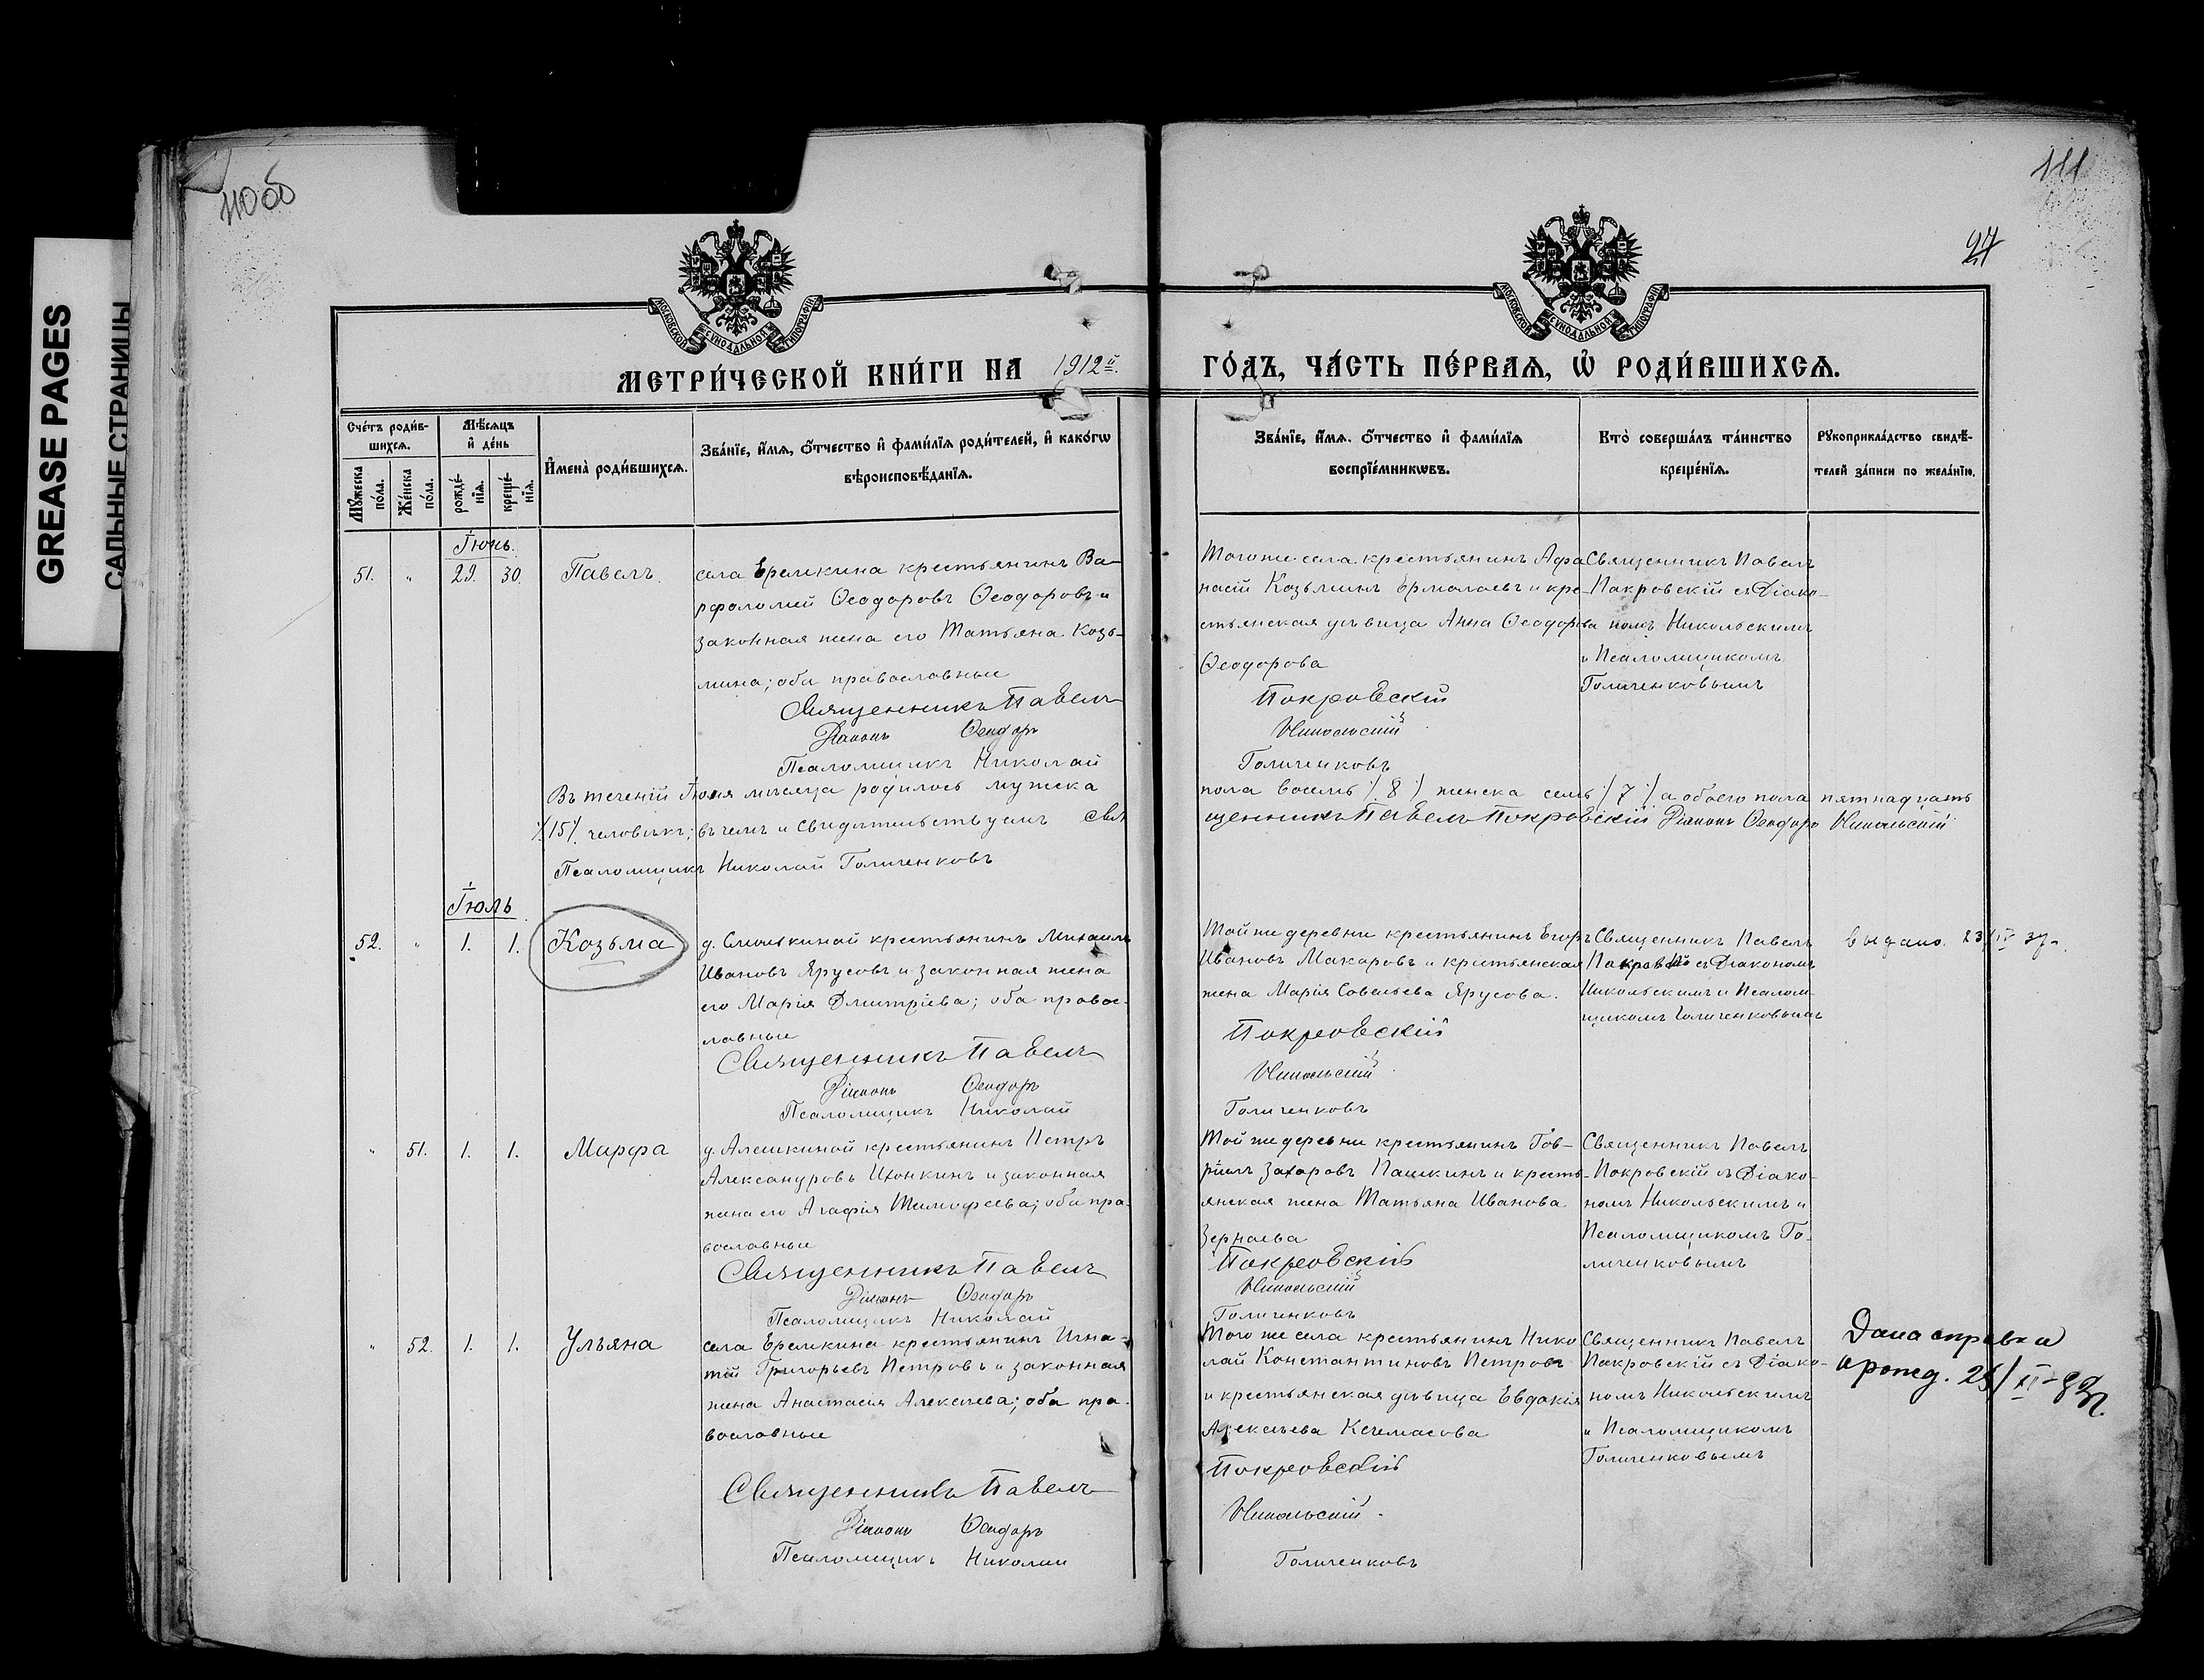 GREASE PAGES
САЛЬНЫЕ СТРАНИЦЫ
110об
111
27
МОСКОВСКОЙ СѴНОДАЛЬНОЙ ТИПОГРАФІИ
МОСКОВСКОЙ СѴНОДАЛЬНОЙ ТИПОГРАФІИ
МЕТРИ́ЧЕСКОЙ КНИ́ГИ НА 1912й.
ГО́ДЪ, ЧА́СТЬ ПЕ́РВАЯ, Ѡ҆ РОДИ́ВШИХСЯ.
Сче́тъ роди́в-
шихся.
Мѣ́сяцъ
и҆ де́нь
Мꙋ́жеска
по́ла.
Же́нска
по́ла.
рожде́-
нїя.
креще́-
нїя.
И҆мена̀ роди́вшихся.
Зва́нїе, и҆́мя, ѻ҆́тчество и҆ фами́лїя роди́телей, и҆ како́гѡ
вѣроисповѣ́данїя.
Зва́нїе, и҆́мя, ѻ҆́тчество и҆ фами́лїя
воспрїе́мникѡвъ.
Кто̀ соверша́лъ та́инство
креще́нїя.
Рꙋкоприкла́дство свидѣ́-
телей за́писи по жела́нїю.
Іюнь.
51. " 29. 30. Павелъ.
села Еремкина крестьянинъ Ва-
рфоломей Ѳеодоровъ Ѳеодоровъ и
законная жена его Татьяна Козь-
мина; оба православные
Священникъ Павелъ
Діаконъ Ѳеодоръ
Псаломщикъ Николай
Того же села крестьянинъ Афа
насій Козьминъ Ермолаевъ и кре-
стьянская дѣвица Анна Ѳеодорова
Ѳеодорова
Покровскій
Никольскій
Голиченковъ
Священникъ Павелъ
Покровскій съ Діако-
номъ Никольскимъ
и Псаломщикомъ
Голиченковымъ
Въ теченій Іюня мѣсяца родилось мужска пола восемь /8/ женска семь /7/ а обоего пола пятнадцать
/15/ человѣкъ; въ чемъ и свидѣтельствуемъ Свя щенникъ Павелъ Покровскій Діаконъ Ѳеодоръ Никольскій
Псаломщикъ Николай Голиченковъ
Іюль
52. " 1. 1. Козьма
крестьянинъ Михаилъ
Ивановъ Ярусовъ и законная жена
его Марія Дмитріева; оба право-
лавные
Священникъ Павелъ
Діаконъ Ѳеодоръ
Псаломщикъ Николай
Той же деревни крестьянинъ Егоръ
Ивановъ Макаровъ и крестьянская
жена Марія Савельева Ярусова.
Покровскій
Никольскій
Голиченковъ
Священникъ Павелъ
Покровскій съ Діакономъ
Никольскимъ и Псалом-
щикомъ Голиченковымъ
выдано. 23/IV 37г.
" 51. 1. 1. Марфа
д. Алешкиной крестьянинъ Петръ
Александровъ и законная
жена его Агафія Тимофеева; оба пра-
вославные
Священникъ Павелъ
Діаконъ Ѳеодоръ
Псаломщикъ Николай
Той же деревни крестьянинъ Гав-
ріилъ Захаровъ Пашкинъ и кресть-
янская жена Татьяна Иванова
Зернаева
Покровскій
Никольскій
Голиченковъ
Священникъ Павелъ
Покровскій съ Діако-
номъ Никольскимъ и
Псаломщикомъ Го-
личенковымъ
" 52. 1. 1. Ульяна
села Еремкина крестьянинъ Игна-
тій Григорьевъ Петровъ и законная
жена Анастасія Алексѣева; оба пра-
вославные
Священникъ Павелъ
Діаконъ Ѳеодоръ
Псаломщикъ Николай
Того же села крестьянинъ Нико
лай Константиновъ Петровъ
и крестьянская дѣвица Евдокія
Алексѣева Кечемасова
Покровскій
Никольскій.
Голиченковъ
Священникъ Павелъ
Покровскій съ Діако-
номъ Никольскимъ
и Псаломщикомъ
Голиченковымъ
Дана справка
о рожд.